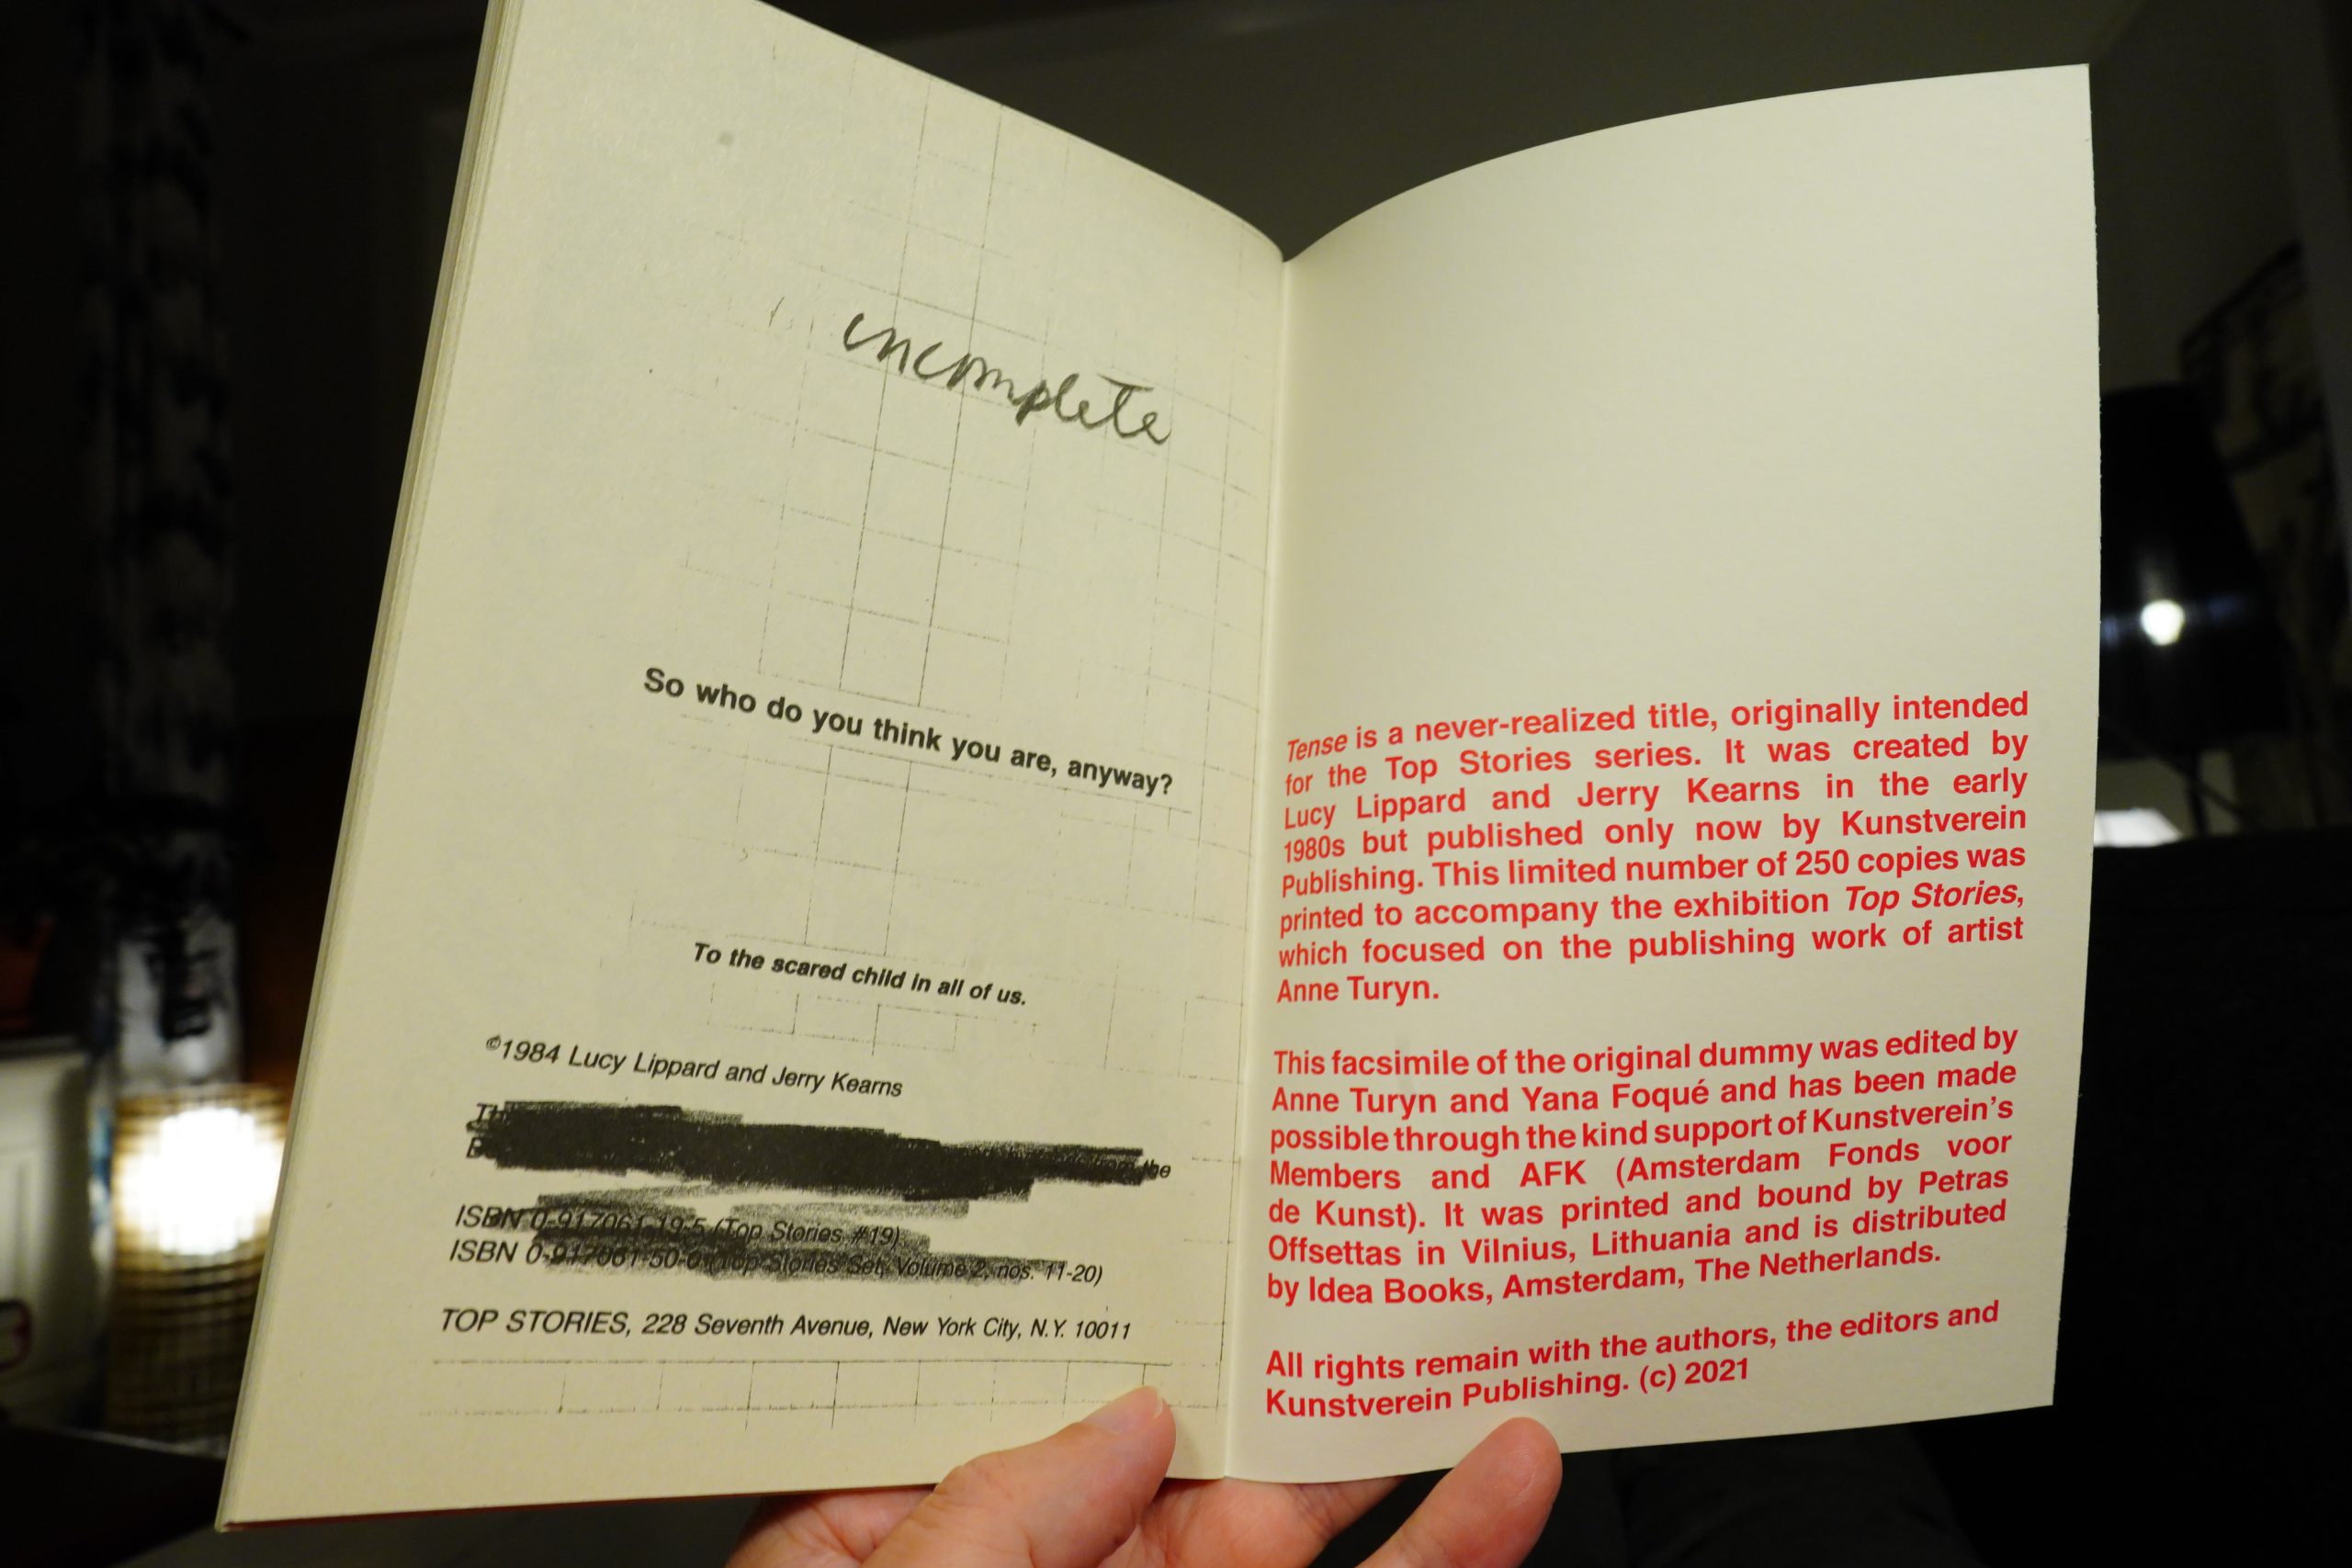 incomplete
So who do you think you are, anyway?
To the scared child in all of us.
©1984 Lucy Lippard and Jerry Kearns
the
ISBN 0-917061-19-5 (Top Stories #19)
ISBN 0-917061-50-0 (Top Stories Set, Volume 2, nos. 11-20)
TOP STORIES, 228 Seventh Avenue, New York City, N.Y. 10011
Tense is a never-realized title, originally intended
for the Top Stories series. It was created by
Lucy Lippard and Jerry Kearns in the early
1980s but published only now by Kunstverein
Publishing. This limited number of 250 copies was
printed to accompany the exhibition Top Stories,
which focused on the publishing work of artist
Anne Turyn.
This facsimile of the original dummy was edited by
Anne Turyn and Yana Foqué and has been made
possible through the kind support of Kunstverein's
Members and AFK (Amsterdam Fonds voor
de Kunst). It was printed and bound by Petras
Offsettas in Vilnius, Lithuania and is distributed
by Idea Books, Amsterdam, The Netherlands.
All rights remain with the authors, the editors and
Kunstverein Publishing. (c) 2021